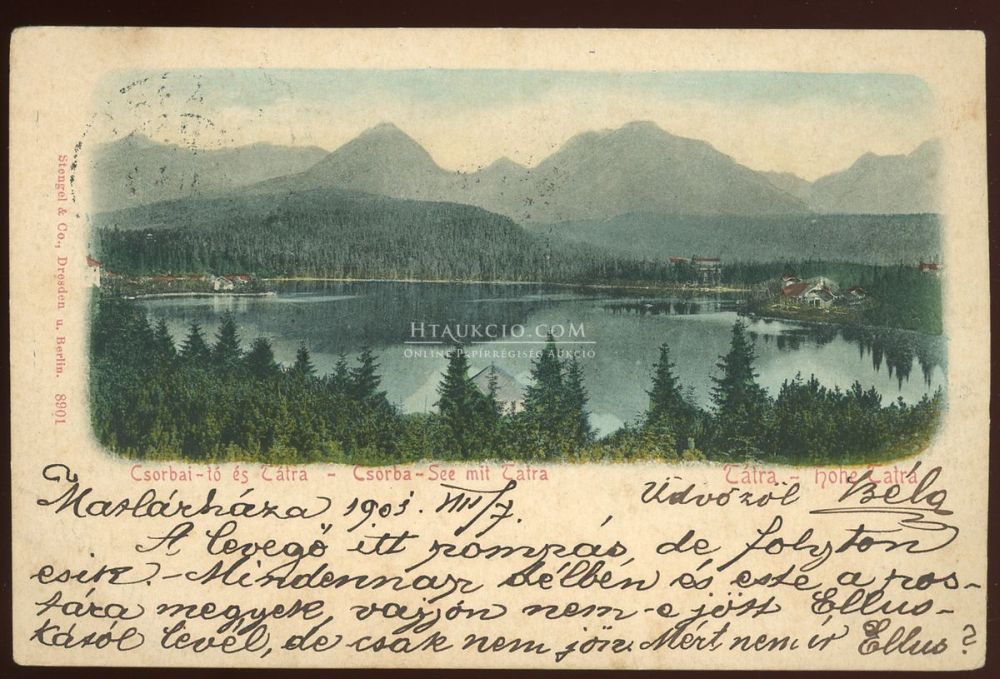 Stengel & Co., Dresden u. Berlin. 8901
HTAUKCIO.COM
ONLINE PAPÍRRÉGISÉG AUKCIÓ
Csorbai-tó és Tátra - Csorba-See mit Tatra
Tátra - Hohe Tatra
Matlárháza 1903. VIII/7. Üdvözöl Béla
A levegő itt pompás, de folyton
esik. - Mindennap délben és este a pos-
tára megyek, vajjon nem-e jött Ellus-
kától levél, de csak nem jön. Mért nem ír Ellus?